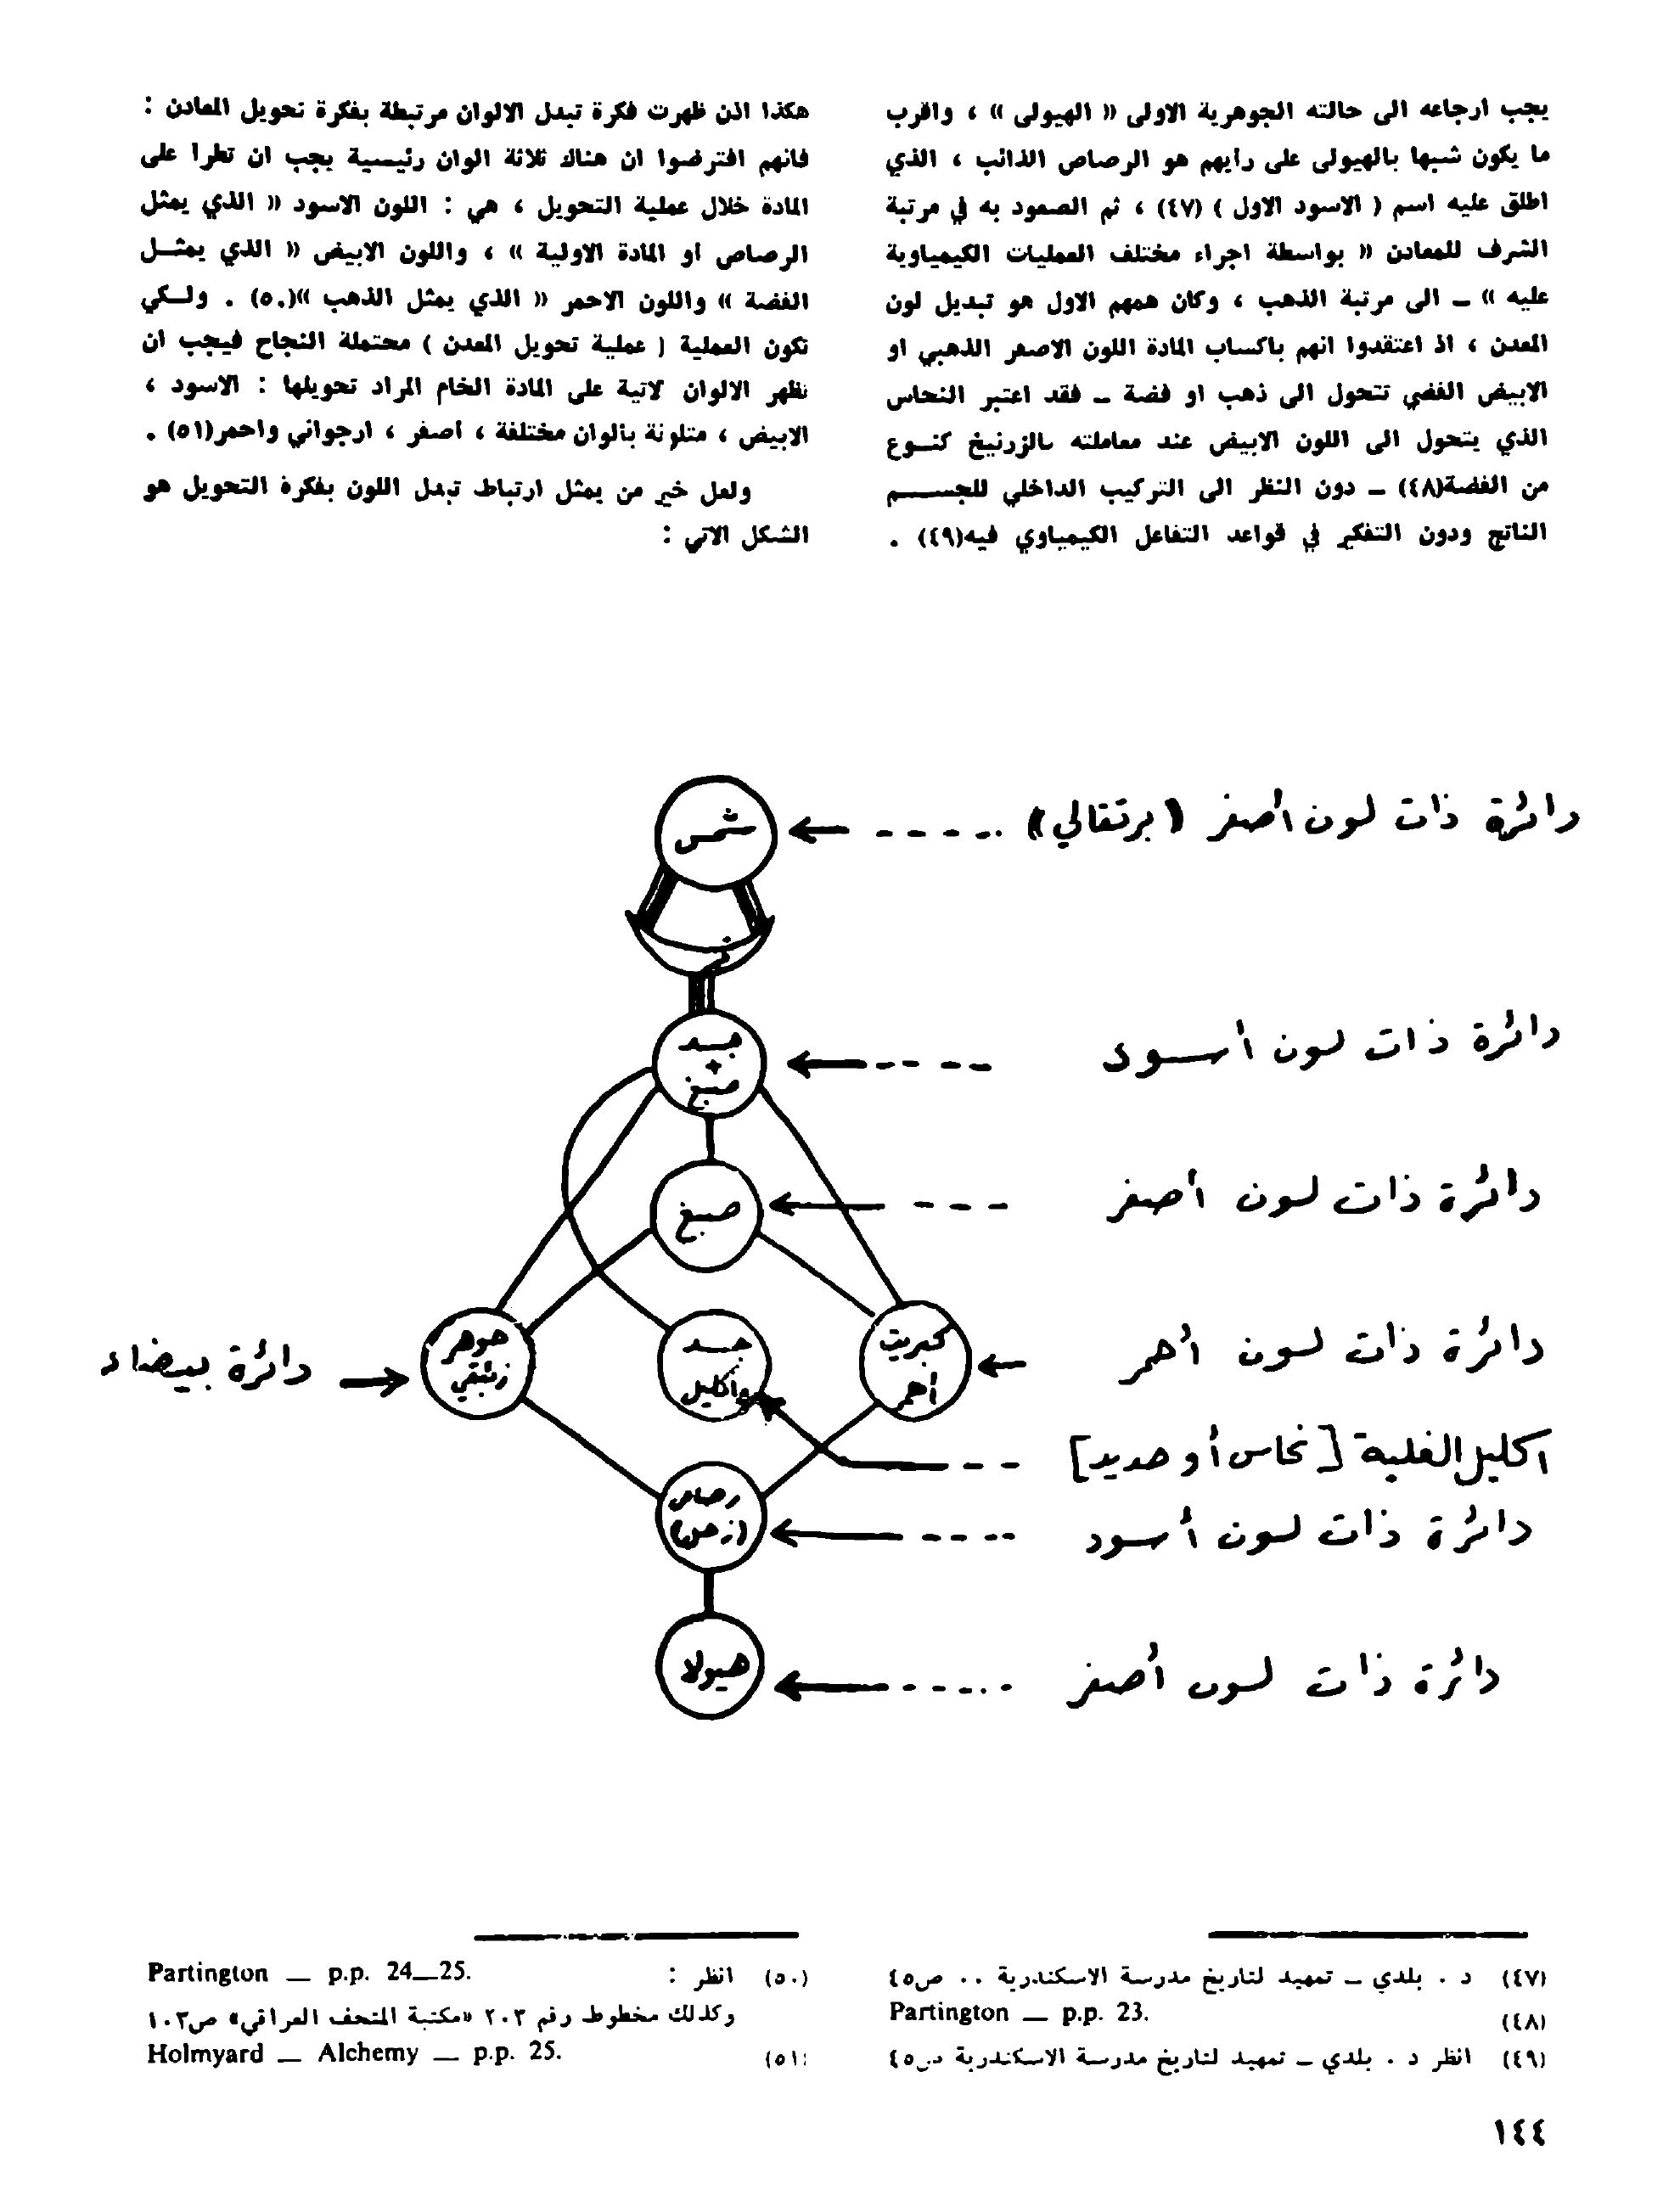 يجب ارجاعه الى حالته الجوهرية الاولى « الهيولى » ، واقرب
ما يكون شبها بالهيولى على رايهم هو الرصاص الذائب ، الذي
اطلق عليه اسم ( الاسود الاول ) (٤٧) ، ثم الصعود به في مرتبة
الشرف للمعادن « بواسطة اجراء مختلف العمليات الكيمياوية
عليه » – الى مرتبة الذهب ، وكان همهم الاول هو تبديل لون
المعدن ، اذ اعتقدوا انهم باكساب المادة اللون الاصفر الذهبي او
الابيض الفضي تتحول الى ذهب او فضة – فقد اعتبر النحاس
الذي يتحول الى اللون الابيض عند معاملته بالزرنيخ كنوع
من الفضة(٤٨) – دون النظر الى التركيب الداخلي للجسم
الناتج ودون التفكير في قواعد التفاعل الكيمياوي فيه(٤٩) .
هكذا اذن ظهرت فكرة تبدل الالوان مرتبطة بفكرة تحويل المعادن :
فانهم افترضوا ان هناك ثلاثة الوان رئيسية يجب ان تطرا على
المادة خلال عملية التحويل ، هي : اللون الاسود « الذي يمثل
الرصاص او المادة الاولية » ، واللون الابيض « الذي يمثل
الفضة » واللون الاحمر « الذي يمثل الذهب »(٥٠) . ولكي
تكون العملية ( عملية تحويل المعدن ) محتملة النجاح فيجب ان
تظهر الالوان لاتية على المادة الخام المراد تحويلها : الاسود ،
الابيض ، متلونة بالوان مختلفة ، اصفر ، ارجواني واحمر(٥١) .
ولعل خير من يمثل ارتباط تبدل اللون بفكرة التحويل هو
الشكل الاتي :
شمس
دائرة ذات لون أصفر (برتقالي)
جسد
+
صبغ
دائرة ذات لون أسود
صبغ
دائرة ذات لون أصفر
كبريت
أحمر
دائرة ذات لون أحمر
جسد
واكليل
جوهر
زئبقي
دائرة بيضاء
اكليل الغلبة [نحاس أو حديد]
رصاص
دائرة ذات لون أسود
هيولا
دائرة ذات لون أصفر
(٤٧) د . بلدي – تمهيد لتاريخ مدرسة الاسكندرية .. ص٤٥
(٤٨) Partington — p.p. 23.
(٤٩) انظر د . بلدي – تمهيد لتاريخ مدرسة الاسكندرية ص٤٥
(٥٠) انظر : Partington — p.p. 24—25.
وكذلك مخطوط رقم ٢٠٣ «مكتبة المتحف العراقي» ص١٠٣
(٥١) Holmyard — Alchemy — p.p. 25.
١٤٤